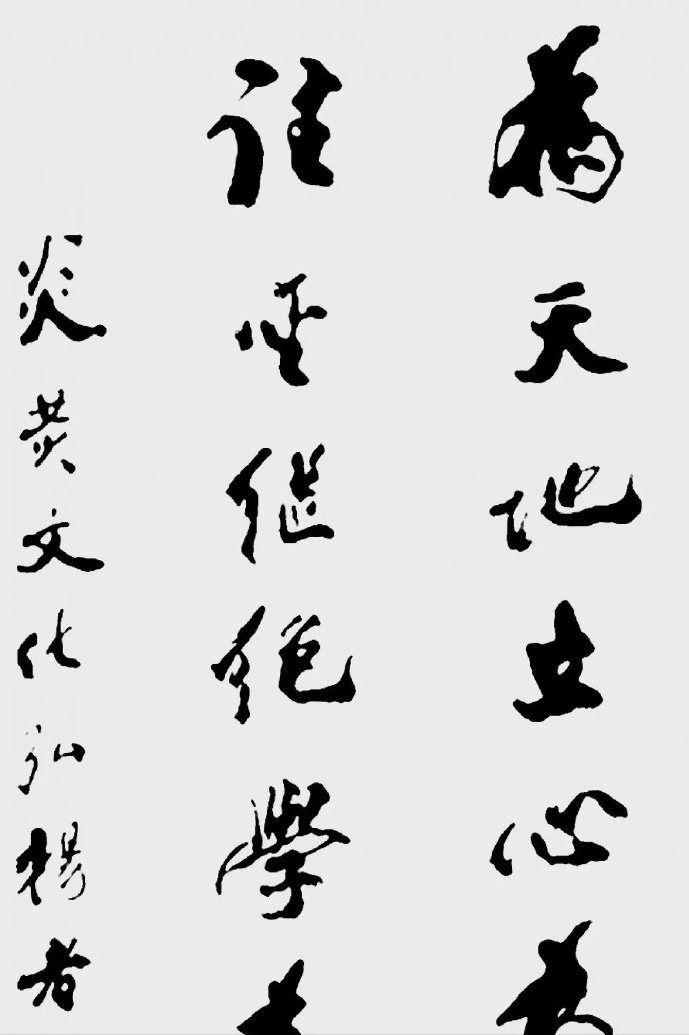 為天地立心為
往聖継絕學為
炎黄文化弘楊者